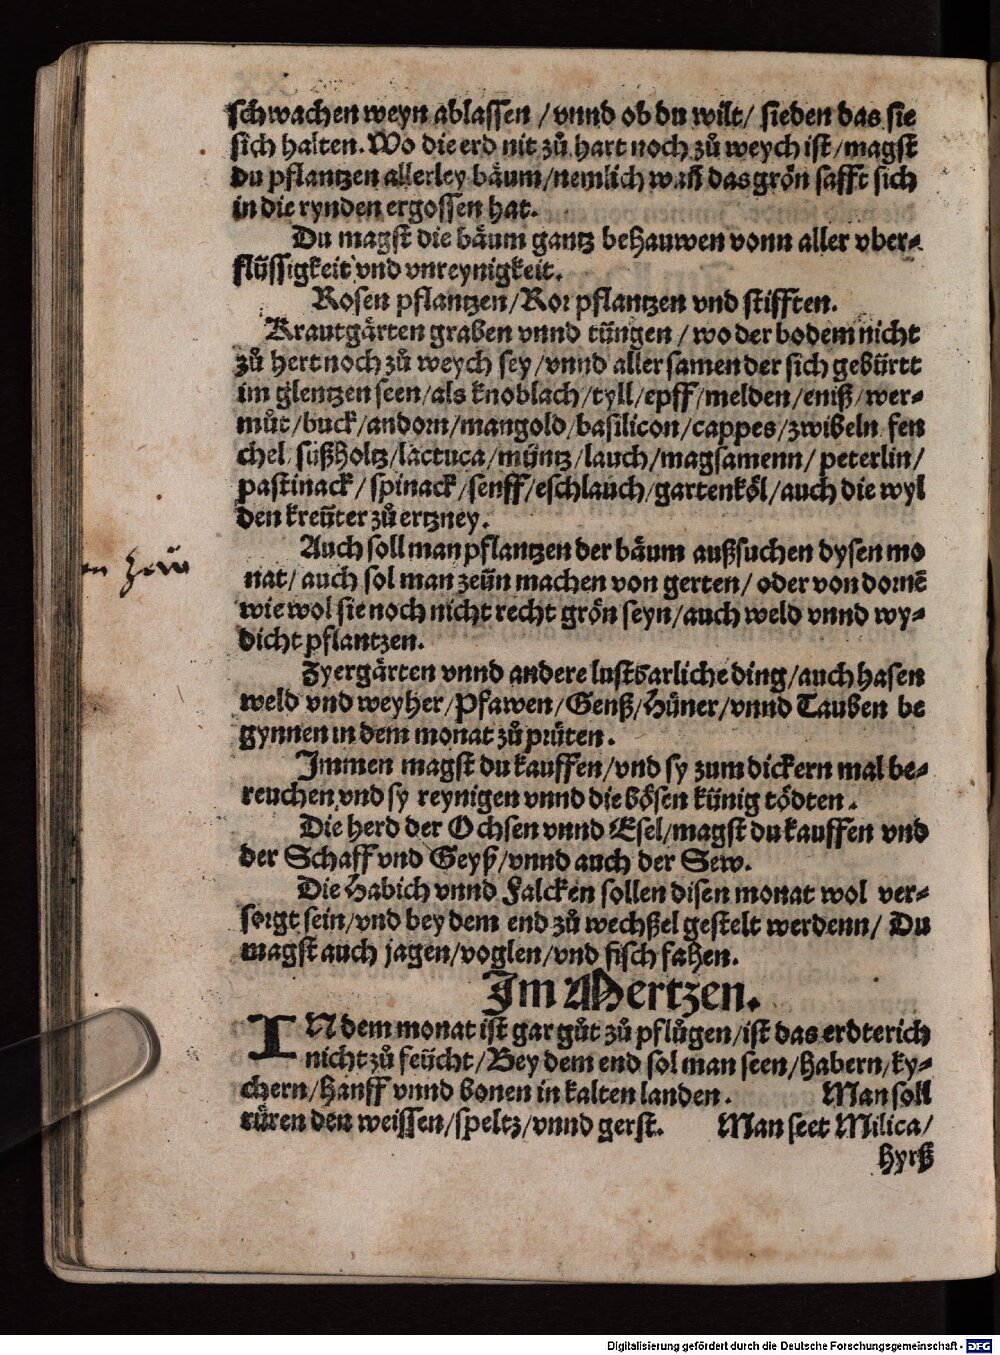 schwachen weyn ablassen / vnnd ob du wilt / sieden das sie
sich halten. Wo die erd nit zů hart noch zů weych ist / magst
du pflantzen allerley bäum / nemlich wañ das grön safft sich
in die rynden ergossen hat.
Du magst die bäum gantz behauwen vonn aller vber-
flüssigkeit vnd vnreynigkeit.
Rosen pflantzen / Ror pflantzen vnd stifften.
Krautgärten graben vnnd tüngen / wo der bodem nicht
zů hert noch zů weych sey / vnnd aller samen der sich gebürtt
im glentzen seen / als knoblach / tyll / epff / melden / eniß / wer-
můt / buck / andorn / mangold / basilicon / cappes / zwibeln fen
chel süßholtz / lactuca / müntz / lauch / magsamenn / peterlin /
pastinack / spinack / senff / eschlauch / gartenköl / auch die wyl
den kreüter zů ertzney.
Auch soll man pflantzen der bäum außsuchen dysen mo
nat / auch sol man zeün machen von gerten / oder von dornẽ
wie wol sie noch nicht recht grön seyn / auch weld vnnd wy-
dicht pflantzen.
Zyergärten vnnd andere lustbarliche ding / auch hasen
weld vnd weyher / Pfawen / Genß / Hüner / vnnd Tauben be
gynnen in dem monat zů prüten.
Immen magst du kauffen / vnd sy zum dickern mal be-
reuchen vnd sy reynigen vnnd die bösen künig tödten.
Die herd der Ochsen vnnd Esel / magst du kauffen vnd
der Schaff vnd Geyß / vnnd auch der Sew.
Die Habich vnnd Falcken sollen disen monat wol ver-
sorgt sein / vnd bey dem end zů wechßel gestelt werdenn / Du
magst auch jagen / voglen / vnd fisch fahen.
Im Mertzen.
IN dem monat ist gar gůt zů pflůgen / ist das erdterich
nicht zů feücht / Bey dem end sol man seen / habern / ky-
chern / Hanff vnnd bonen in kalten landen. Man soll
rüren den weissen / speltz / vnnd gerst. Man seet Milica /
Hyrß
Digitalisierung gefördert durch die Deutsche Forschungsgemeinschaft - DFG